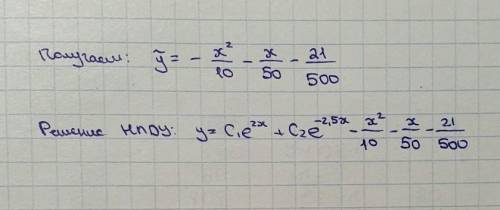 Получаем: ỹ = - x²/10 - x/50 - 21/500
Решение НЛДУ: y = C₁e^{2x} + C₂e^{-2,5x} - x²/10 - x/50 - 21/500